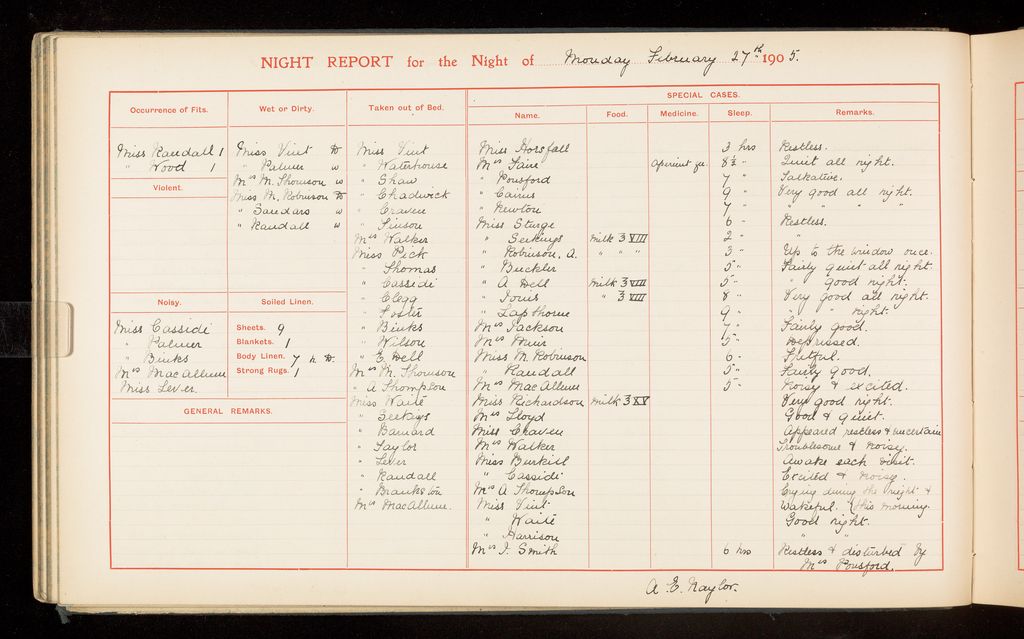 NIGHT REPORT for the Night of Monday February 27th 1905.
Occurrence of Fits.
Miss Randall 1
" Wood 1
Violent.
Noisy.
Miss Cassidi
" Palmer
" Binks
Mrs MacAllum
Miss Lever.
Wet or Dirty.
Miss Vint D
" Palmer w
Mrs M. Thomson w
Miss M. Robinson D
" Sandars w
" Randall w
Soiled Linen.
Sheets. 9
Blankets. 1
Body Linen. 7 n. D.
Strong Rugs. 1
GENERAL REMARKS.
Taken out of Bed.
Miss Vint
" Waterhouse
" Shaw
" Chadwick
" Craven
" Simson
Mrs Walker
Miss Pick
" Thomas
" Cassidi
" Clegg
" Foster
" Binks
" Wilson
" E. Dell
Mrs M. Thomson
" A Thompson
Miss Waite
" Seekings
" Barnard
" Taylor
" Lever
" Randall
" Brankston
Mrs MacAllum.
SPECIAL CASES.
Name. Food. Medicine. Sleep. Remarks.
Miss Horsfall 3 hrs Restless.
Mrs Faire Aperient gr. 8½ " Quiet all night.
" Ponsford 7 " Talkative.
" Cairns 9 " Very good all night.
" Newton 7 " " " " "
Miss Sturge 6 " Restless.
" Seekings milk ℥ VIII 2 " "
" Robinson, A. " " " 3 " Up to the window once.
" Buckler 5 " Fairly quiet all night.
" A Dell milk ℥ VIII 5 " " good night.
" Louis " ℥ VIII 8 " Very good all night.
" Lapthorne 9 " " " night.
Mrs Jackson 7 " Fairly good.
Mrs Muir 5 " Depressed.
Miss M. Robinson 6 " Fitful.
" Randall 5 " Fairly good.
Mrs MacAllum 5 " Noisy & excited.
Miss Richardson milk ℥ XV Very good night.
Mrs Lloyd Good & quiet.
Miss Craven Appeared restless & uncertain
Mrs Walker Troublesome & noisy.
Miss Burkill Awake each visit.
" Cassidi Excited & noisy.
Mrs A Thompson Crying during the night &
Miss Vint Wakeful. this morning.
" Waite Good night.
" Harrison " "
Mrs I. Smith 6 hrs Restless & disturbed by
Mrs Ponsford.
A. E. Naylor.